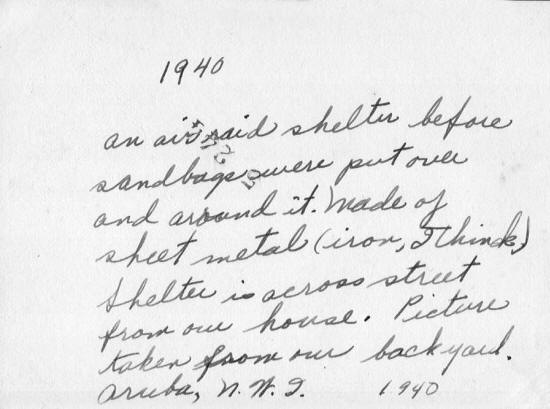 1940
an air raid shelter before
sandbags were put over
and around it. Made of
sheet metal (iron, I think)
Shelter is across street
from our house. Picture
taken from our backyard.
Aruba, N.W.I. 1940